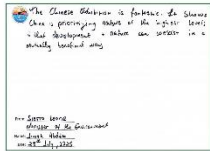 The Chinese Exhibition is fantastic. It shows
China is prioritizing nature at the highest level;
that development & nature can coexist in a
mutually beneficial way
Sierra Leone
Minister of the Environment
Jiwoh Abdulai